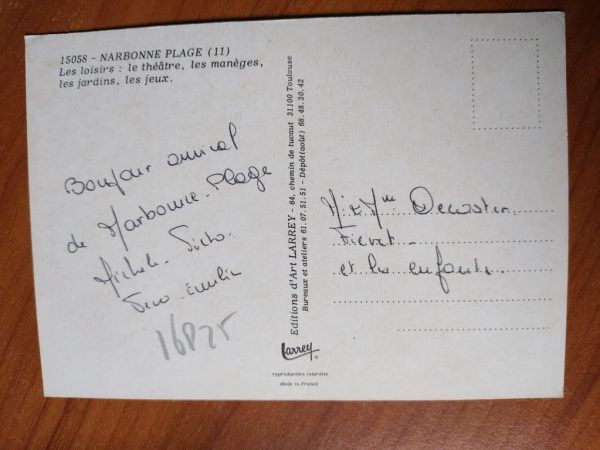 15058 - NARBONNE PLAGE (11)
Les loisirs : le théâtre, les manèges,
les jardins, les jeux.
Bonjour amical
de Narbonne-Plage
Michele
16825
Editions d'Art LARREY - 64, chemin de tucaut 31100 Toulouse
Bureaux et ateliers 61.07.51.51 - Dépôt (août) 68.48.30.42
Larrey
reproduction interdite
Made in France
M. & Mme Decoster
Fievet
et les enfants